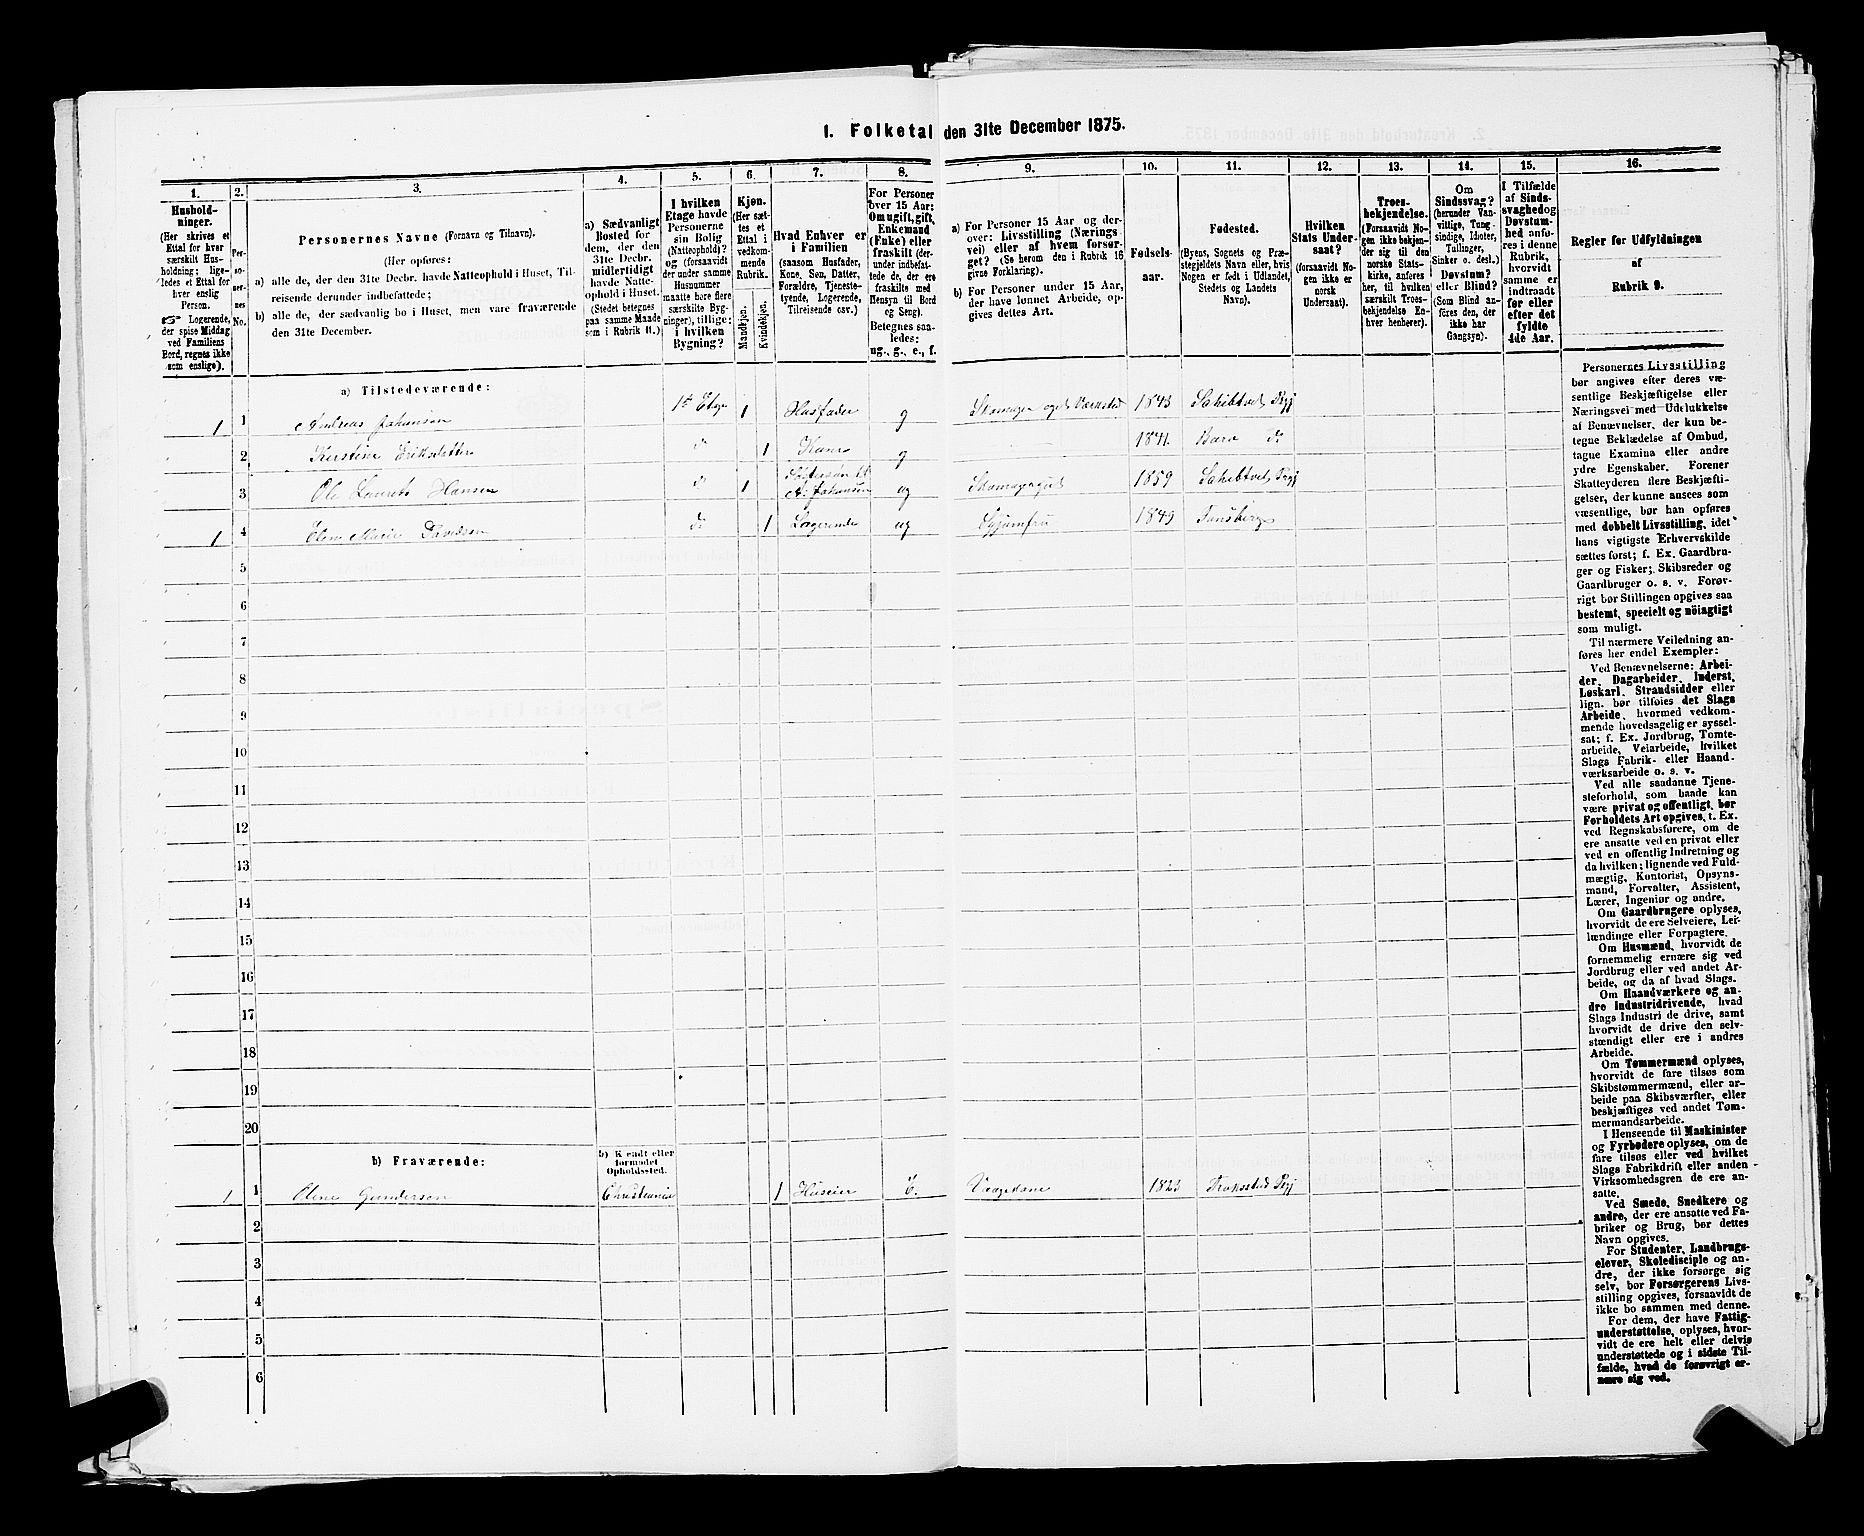 1. Folketal den 31te December 1875.
1.
2.
3.
4.
5.
6.
7.
8.
9.
10.
11.
12.
13.
14.
15.
16.
Hushold-
ninger.
(Her skrives et
Ettal for hver
særskilt Hus-
holdning; lige-
ledes et Ettal for
hver enslig
Person.
☞ Logerende,
der spise Middag
ved Familiens
Bord, regnes ikke
som enslige).
Per-
so-
ner-
nes
No.
Personernes Navne (Fornavn og Tilnavn).
(Her opføres:
a) alle de, der den 31te Decbr. havde Natteophold i Huset, Til-
reisende derunder indbefattede;
b) alle de, der sædvanlig bo i Huset, men vare fraværende
den 31te December.
a) Sædvanligt
Bosted for
dem, der den
31te Decbr.
midlertidigt
havde Natte-
ophold i Huset.
(Stedet betegnes
paa samme Maade
som i Rubrik 11.)
I hvilken
Etage havde
Personerne
sin Bolig
(Natteophold)?
og (forsaavidt
der under samme
Husnummer
maatte høre flere
særskilte Byg-
ninger), tillige:
i hvilken
Bygning?
Kjøn.
(Her sæt-
tes et
Ettal i
vedkom-
mende
Rubrik.
Mandkjøn.
Kvindekjøn.
Hvad Enhver er
i Familien
(saasom Husfader,
Kone, Søn, Datter,
Forældre, Tjeneste-
tyende, Logerende,
Tilreisende osv.)
For Personer
over 15 Aar:
Om ugift, gift,
Enkemand
(Enke) eller
fraskilt (der-
under indbefat-
tede de, der ere
fraskilte med
Hensyn til Bord
og Seng).
Betegnes saa-
ledes:
ug., g., e., f.
a) For Personer 15 Aar og der-
over: Livsstilling (Nærings-
vei) eller af hvem forsør-
get? (Se herom den i Rubrik 16
givne Forklaring).
b) For Personer under 15 Aar,
der have lønnet Arbeide, op-
gives dettes Art.
Fødsels-
aar.
Fødested.
(Byens, Sognets og Præ-
stegjeldets Navn eller, hvis
Nogen er født i Udlandet,
Stedets og Landets
Navn).
Hvilken
Stats Under-
saat?
(forsaavidt No-
gen ikke er
norsk
Undersaat).
Troes-
bekjendelse.
(Forsaavidt No-
gen ikke bekjen-
der sig til den
norske Stats-
kirke, anføres
her, til hvilken
særskilt Troes-
bekjendelse En-
hver henhører).
Om
Sindssvag?
(herunder Van-
vittige, Tung-
sindige, Idioter,
Tullinger,
Sinker o. desl.)
Døvstum?
eller Blind?
(Som Blind an-
føres den, der
ikke har
Gangsyn).
I Tilfælde
af Sinds-
svaghed og
Døvstum-
hed anfø-
res i denne
Rubrik,
hvorvidt
samme er
indtraadt
før eller
efter det
fyldte
4de Aar.
Regler for Udfyldningen
af
Rubrik 9.
a) Tilstedeværende:
1 1 Andreas Johansen 1ste Etage 1 Husfader g Skomager eget Værksted 1843 Schibtvet Prgj
2 Kirstine Eriksdatter do 1 Kone g 1841 do
3 Ole Laurits Hansen do 1 Søstersøn til A. Johansen ug 1859 Schibtvet Prgj
1 4 Marie Davidsen do 1 Logerende ug Syjomfru 1849 Tønsberg
5
6
7
8
9
10
11
12
13
14
15
16
17
18
19
20
b) Fraværende:
b) Kjendt eller
formodet
Opholdssted.
1 1 Olene Gundersen Christiania 1 Huseier E. Vaagekone 1823 Prgj
2
3
4
5
6
Personernes Livsstilling
bør angives efter deres væ-
sentlige Beskjæftigelse eller
Næringsvei med Udelukkelse
af Benævnelser, der kun be-
tegne Beklædelse af Ombud,
tagne Examina eller andre
ydre Egenskaber. Forener
Skatteyderen flere Beskjæfti-
gelser, der kunne ansees som
væsentlige, bør han opføres
med dobbelt Livsstilling, idet
hans vigtigste Erhvervskilde
sættes først; f. Ex. Gaardbru-
ger og Fisker; Skibsreder og
Gaardbruger o. s. v. Forøv-
rigt bør Stillingen opgives saa
bestemt, specielt og nöiagtigt
som muligt.
Til nærmere Veiledning an-
føres her endel Exempler:
Ved Benævnelserne: Arbei-
der, Dagarbeider, Inderst,
Løskarl, Strandsidder eller
lign. bør tilføies det Slags
Arbeide, hvormed vedkom-
mende hovedsagelig er syssel-
sat; f. Ex. Jordbrug, Tomte-
arbeide, Veiarbeide, hvilket
Slags Fabrik- eller Haand-
værksarbeide o. s. v.
Ved alle saadanne Tjene-
steforhold, som baade kan
være privat og offentligt, bør
Forholdets Art opgives, t. Ex.
ved Regnskabsførere, om de
ere ansatte ved en privat eller
ved en offentlig Indretning og
da hvilken; lignende ved Fuld-
mægtig, Kontorist, Opsyns-
mand, Forvalter, Assistent,
Lærer, Ingeniør og andre.
Om Gaardbrugere oplyses,
hvorvidt de ere Selveiere, Lei-
lændinge eller Forpagtere.
Om Husmænd, hvorvidt de
fornemmelig ernære sig ved
Jordbrug eller ved andet Ar-
beide, og da af hvad Slags.
Om Haandværkere og an-
dre Industridrivende, hvad
Slags Industri de drive, samt
hvorvidt de drive den selv-
stændigt eller ere i andres
Arbeide.
Om Tømmermænd oplyses,
hvorvidt de fare tilsøs som
Skibstømmermænd, eller ar-
beide paa Skibsværfter, eller
beskjæftiges ved andet Tøm-
mermandsarbeide.
I Henseende til Maskinister
og Fyrbødere oplyses, om de
fare tilsøs eller ved hvilket
Slags Fabrikdrift eller anden
Virksomhedsgren de ere an-
satte.
Ved Smede, Snedkere og
andre, der ere ansatte ved Fa-
briker og Brug, bør dettes
Navn opgives.
For Studenter, Landbrugs-
elever, Skoledisciple og an-
dre, der ikke forsørge sig
selv, bør Forsørgerens Livs-
stilling opgives, forsaavidt de
ikke bo sammen med denne.
For dem, der have Fattig-
understøttelse, oplyses, hvor-
vidt de ere helt eller delvis
understøttede og i sidste Til-
fælde, hvad de forøvrigt er-
nære sig ved.